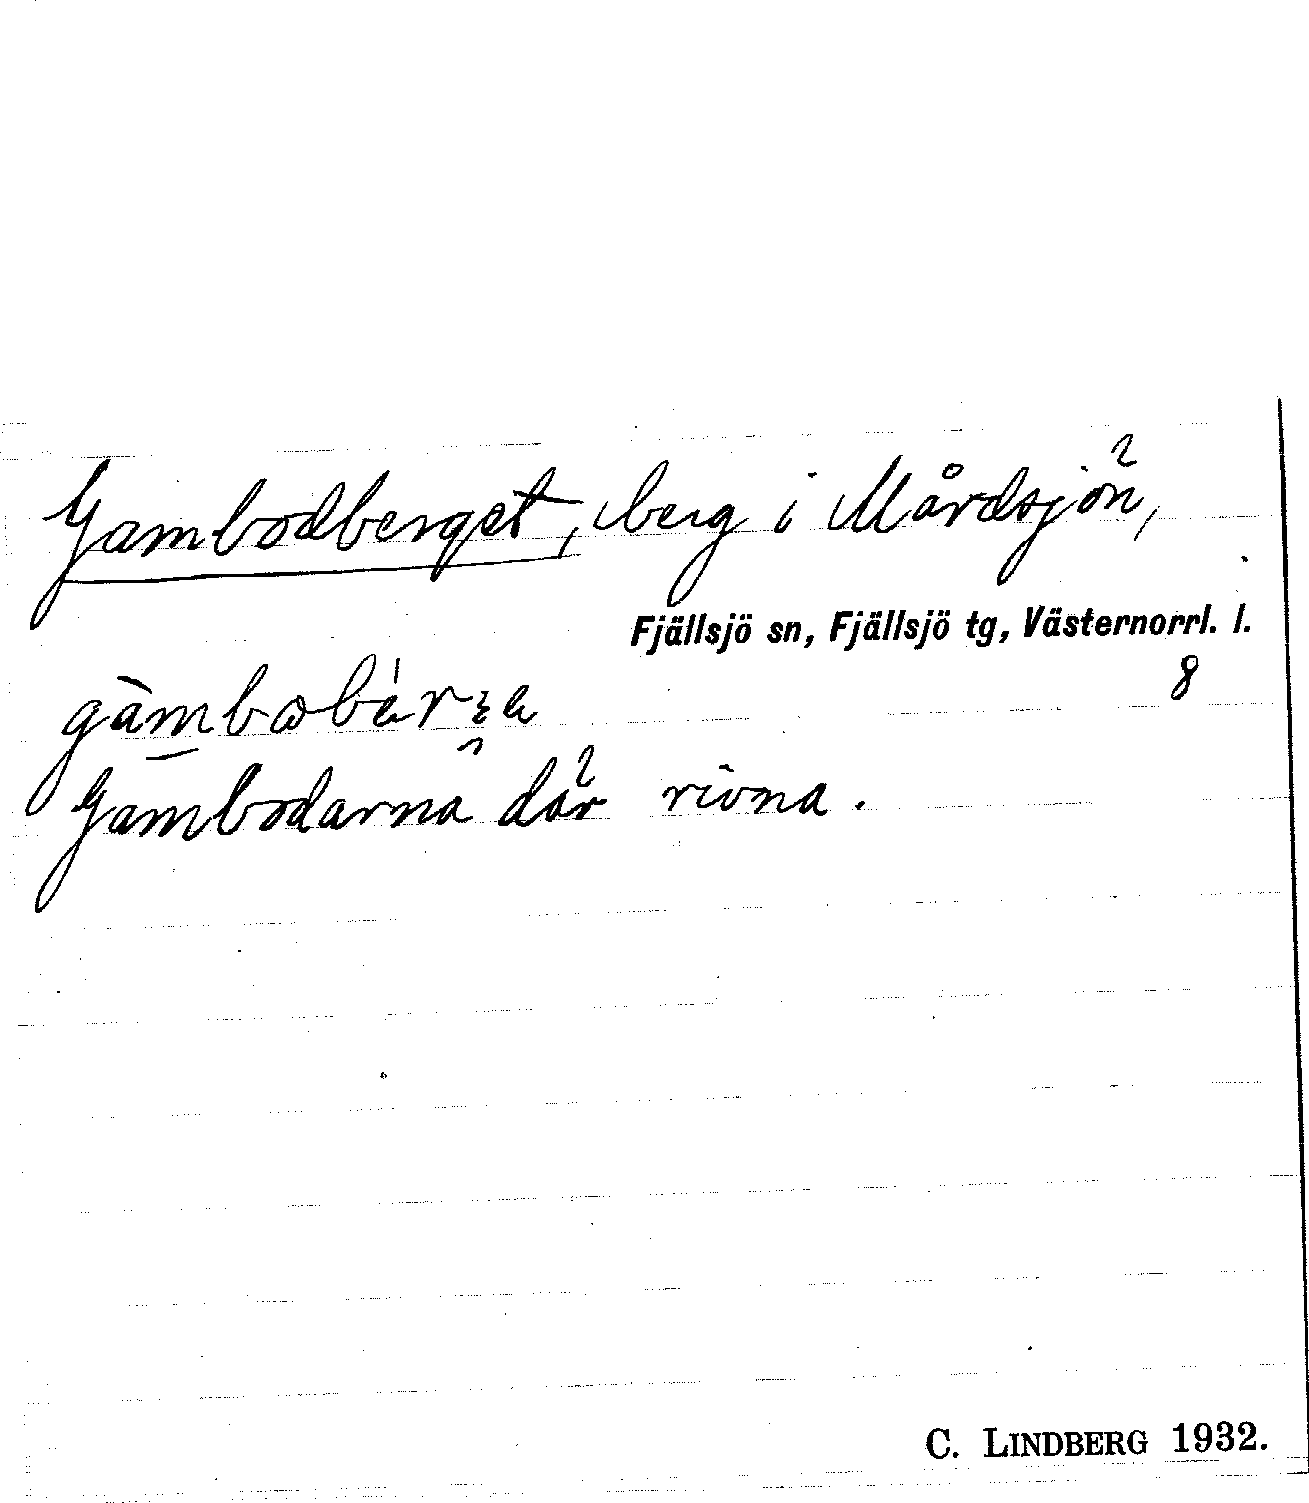 Gambodberget, berg i Mårdsjön,
Fjällsjö sn, Fjällsjö tg, Västernorrl. l.
8
Gambodarna där rivna.
C. LINDBERG 1932.